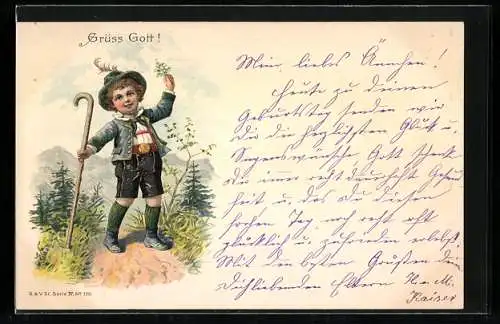 Grüss Gott!
Mein liebes Ännchen!
Heute zu deinem
Geburtstag senden wir
Dir die herzlichsten Glück u.
Segenswünsche, Gott schenk
Dir immer recht dauerhaft Gesund
heit u. das Du diesen
frohen Tag noch recht oft
glücklich u. zufrieden erlebst.
Mit den besten Grüßen Deine
Dichliebenden Eltern H. u. M.
Kaiser